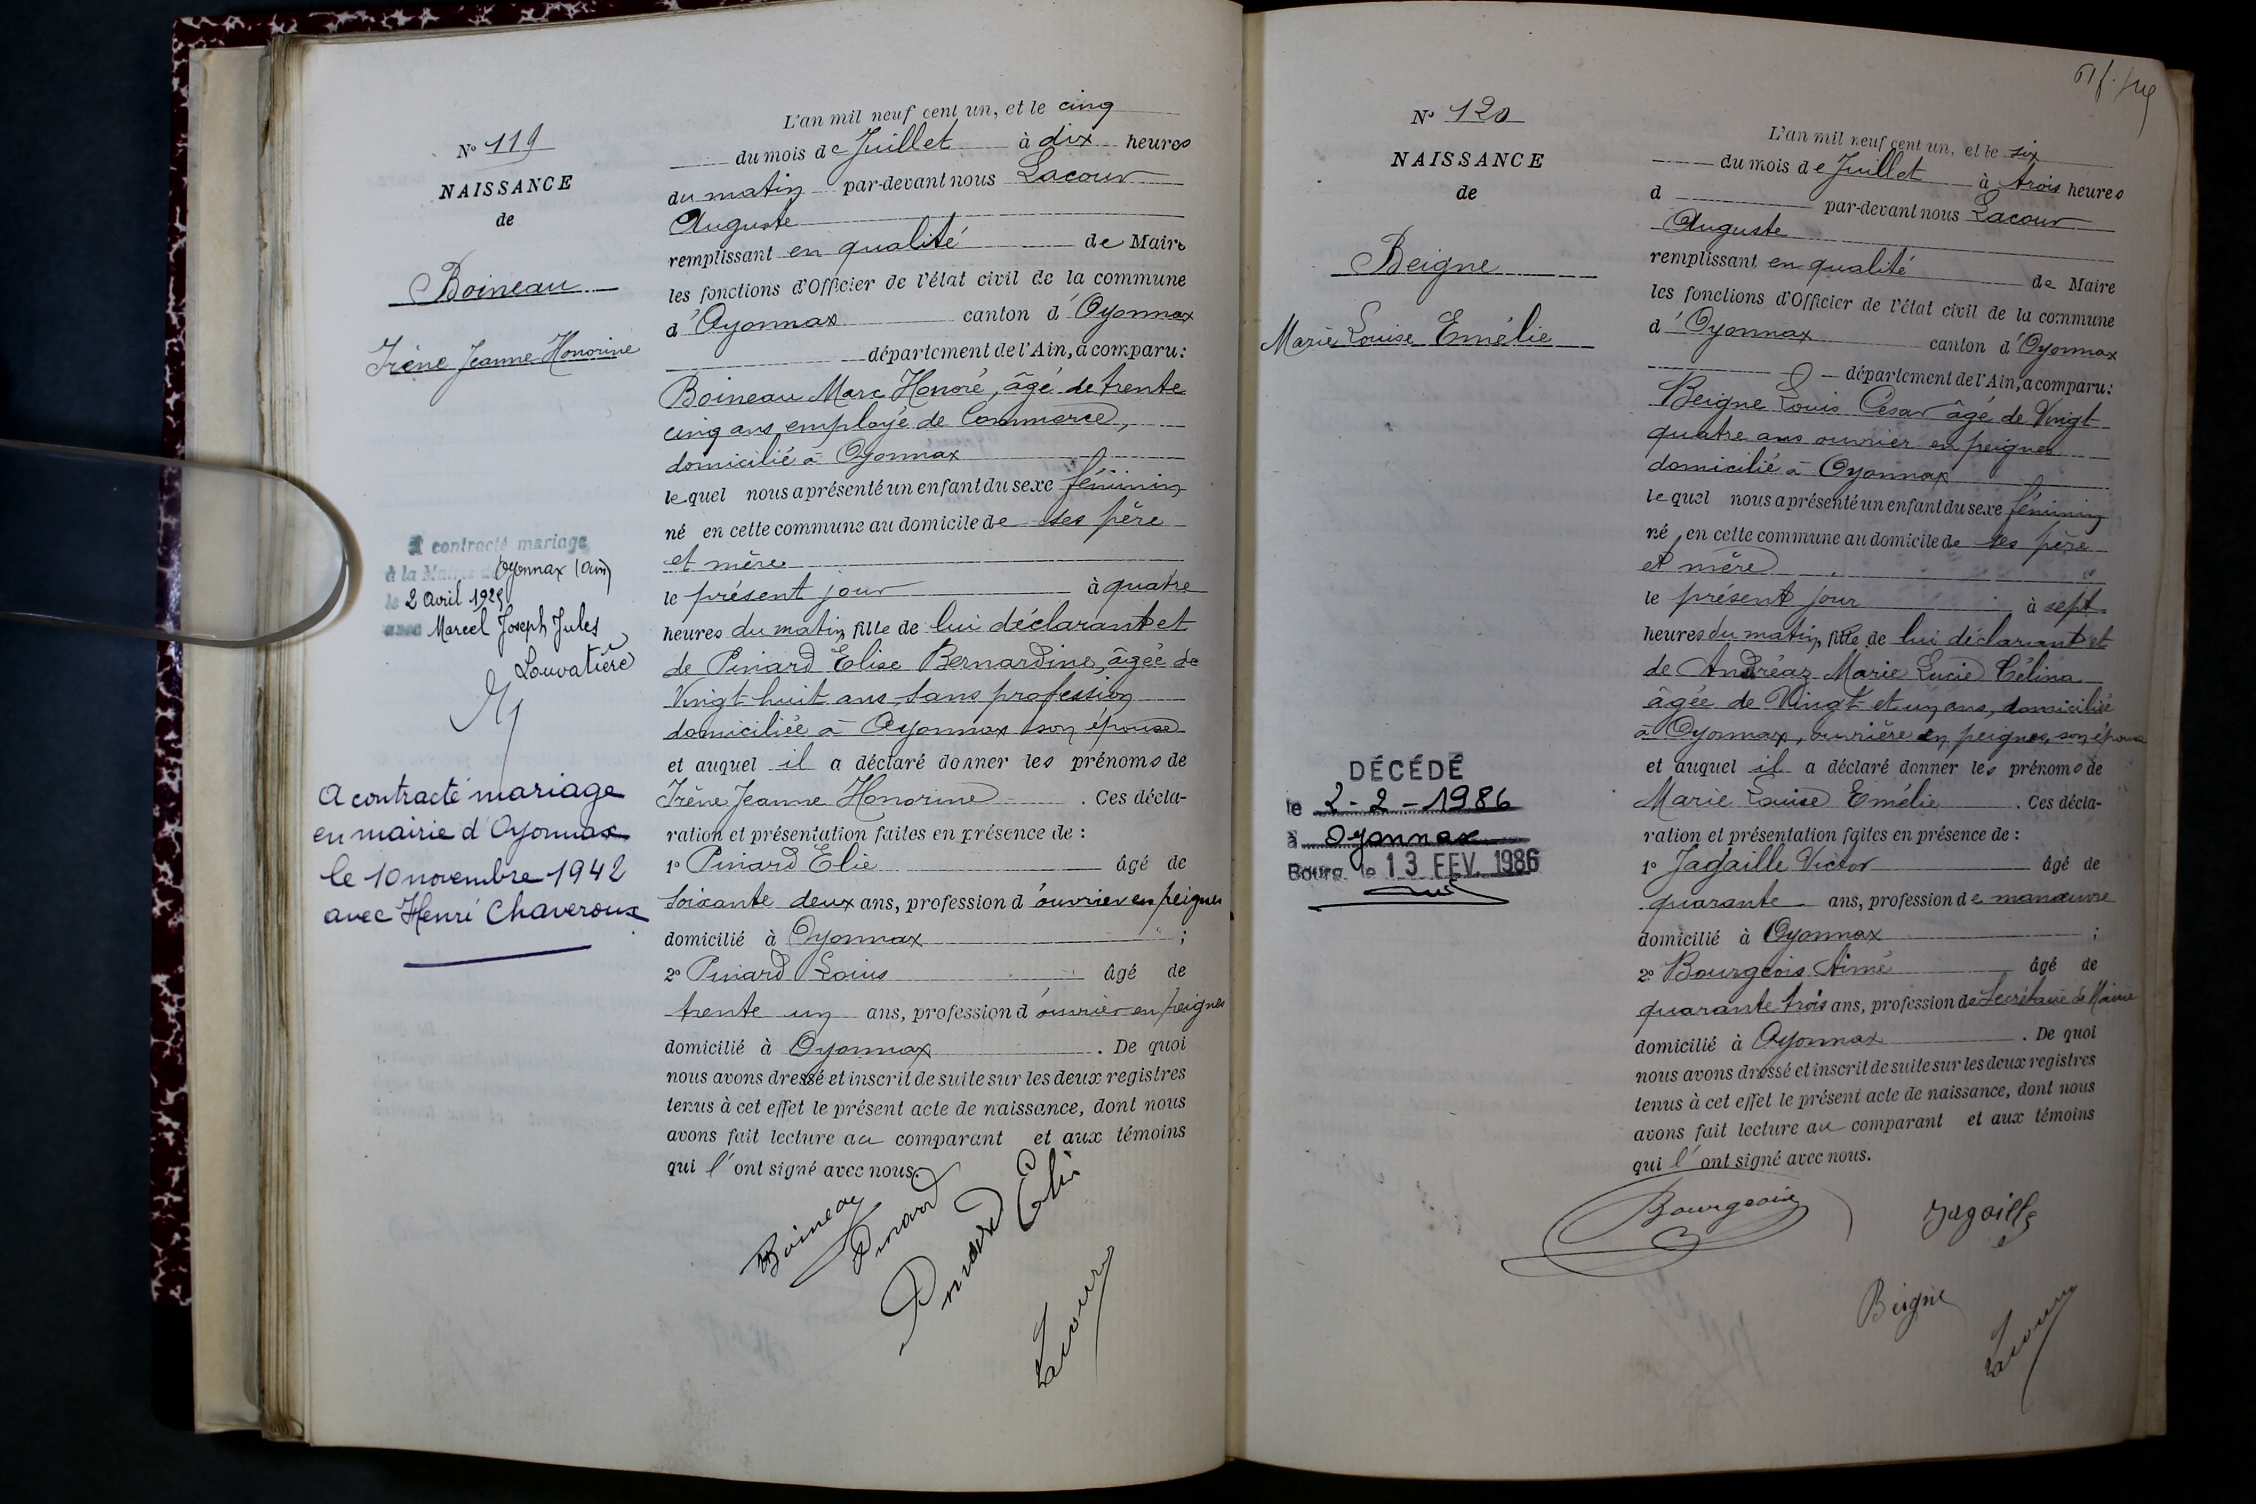 N° 119
NAISSANCE
de
Boineau
Irène Jeanne Honorine
A contracté mariage
à la Mairie d'Oyonnax (Ain)
le 2 Avril 1925
avec Marcel Joseph Jules
Louvatière
A contracté mariage
en mairie d'Oyonnax
le 10 novembre 1942
avec Henri Chaveroux
L'an mil neuf cent un, et le cinq
du mois de Juillet à dix heures
du matin par-devant nous Lacour
Auguste
remplissant en qualité de Maire
les fonctions d'Officier de l'état civil de la commune
d'Oyonnax canton d'Oyonnax
département de l'Ain, a comparu:
Boineau Marc Honoré, âgé de trente
cinq ans, employé de Commerce,
domicilié à Oyonnax
lequel nous a présenté un enfant du sexe féminin
né en cette commune au domicile de ses père
et mère
le présent jour à quatre
heures du matin, fille de lui déclarant et
de Pinard Elise Bernardine, âgée de
Vingt-huit ans, sans profession
domiciliée à Oyonnax son épouse
et auquel il a déclaré donner les prénoms de
Irène Jeanne Honorine. Ces décla-
ration et présentation faites en présence de :
1° Pinard Elie âgé de
soixante deux ans, profession d'ouvrier en peignes
domicilié à Oyonnax ;
2° Pinard Loius âgé de
trente un ans, profession d'ouvrier en peignes
domicilié à Oyonnax. De quoi
nous avons dressé et inscrit de suite sur les deux registres
tenus à cet effet le présent acte de naissance, dont nous
avons fait lecture au comparant et aux témoins
qui l'ont signé avec nous.
Boineau Pinard Pinard Elie
Lacour
N° 120
NAISSANCE
de
Beigne
Marie Louise Emélie
DÉCÉDÉ
le 2-2-1986
à Oyonnax
Bourg le 13 FEV. 1986
L'an mil neuf cent un, et le six
du mois de Juillet à trois heures
d par-devant nous Lacour
Auguste
remplissant en qualité de Maire
les fonctions d'Officier de l'état civil de la commune
d'Oyonnax canton d'Oyonnax
département de l'Ain, a comparu:
Beigne Louis César âgé de Vingt
quatre ans ouvrier en peignes
domicilié à Oyonnax
lequel nous a présenté un enfant du sexe féminin
né en cette commune au domicile de ses père
et mère
le présent jour à sept
heures du matin, fille de lui déclarant et
de Andréaz Marie Lucie Célina
âgée de Vingt et un ans, domiciliée
à Oyonnax, ouvrière en peignes, son épouse
et auquel il a déclaré donner les prénoms de
Marie Louise Emélie. Ces décla-
ration et présentation faites en présence de :
1° Jagaille Victor âgé de
quarante ans, profession de manœuvre
domicilié à Oyonnax ;
2° Bourgeois Aimé âgé de
quarante trois ans, profession de Secrétaire de Mairie
domicilié à Oyonnax. De quoi
nous avons dressé et inscrit de suite sur les deux registres
tenus à cet effet le présent acte de naissance, dont nous
avons fait lecture au comparant et aux témoins
qui l'ont signé avec nous.
Bourgeois Jagaille
Beigne Lacour